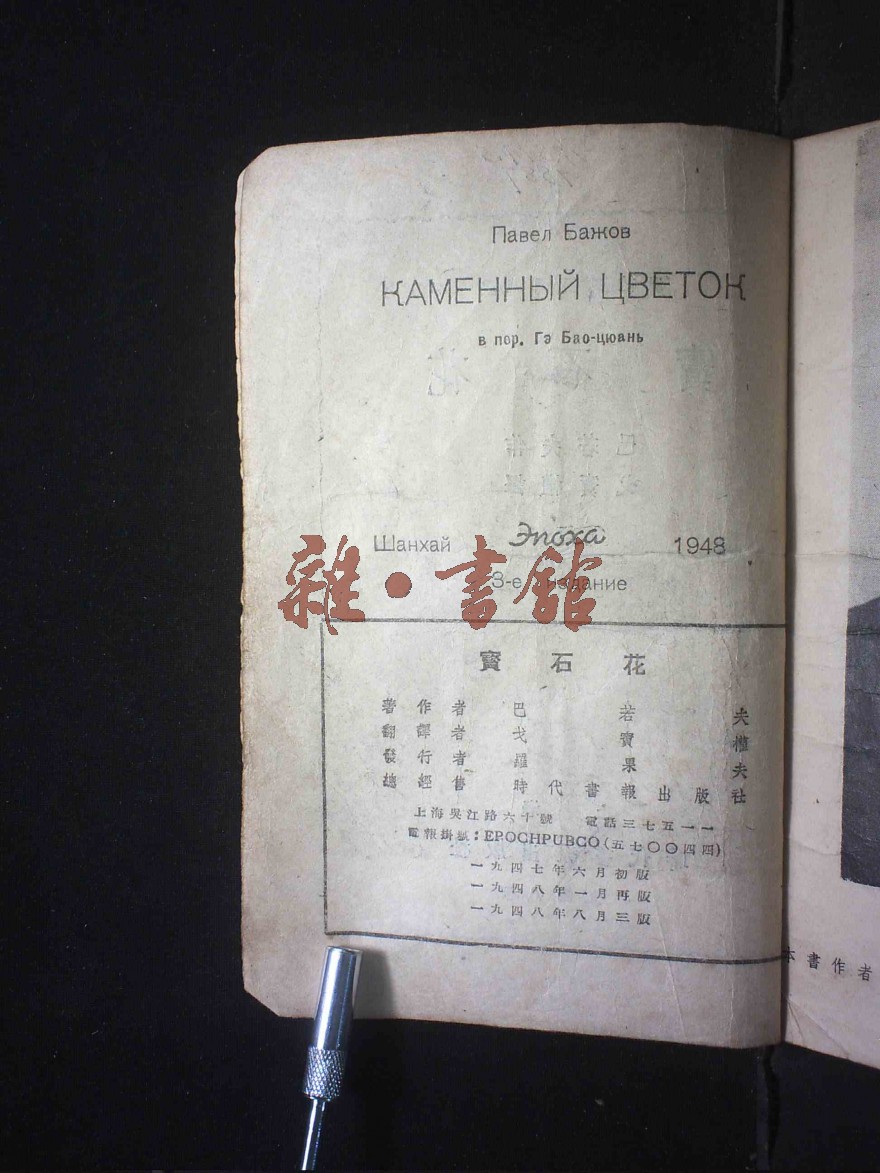 Павел Бажов
КАМЕННЫЙ ЦВЕТОК
в пер. Гэ Бао-цюань
Шанхай Эпоха 1948
3-е издание
雜·書舘
寳石花
著作者 巴若夫
翻譯者 戈寳權
發行者 羅果夫
總經售 時代書報出版社
上海吳江路六十號 電話三七五一一
電報掛號：EPOCHPUBCO(五七〇〇四四)
一九四七年六月初版
一九四八年一月再版
一九四八年八月三版
本書作者